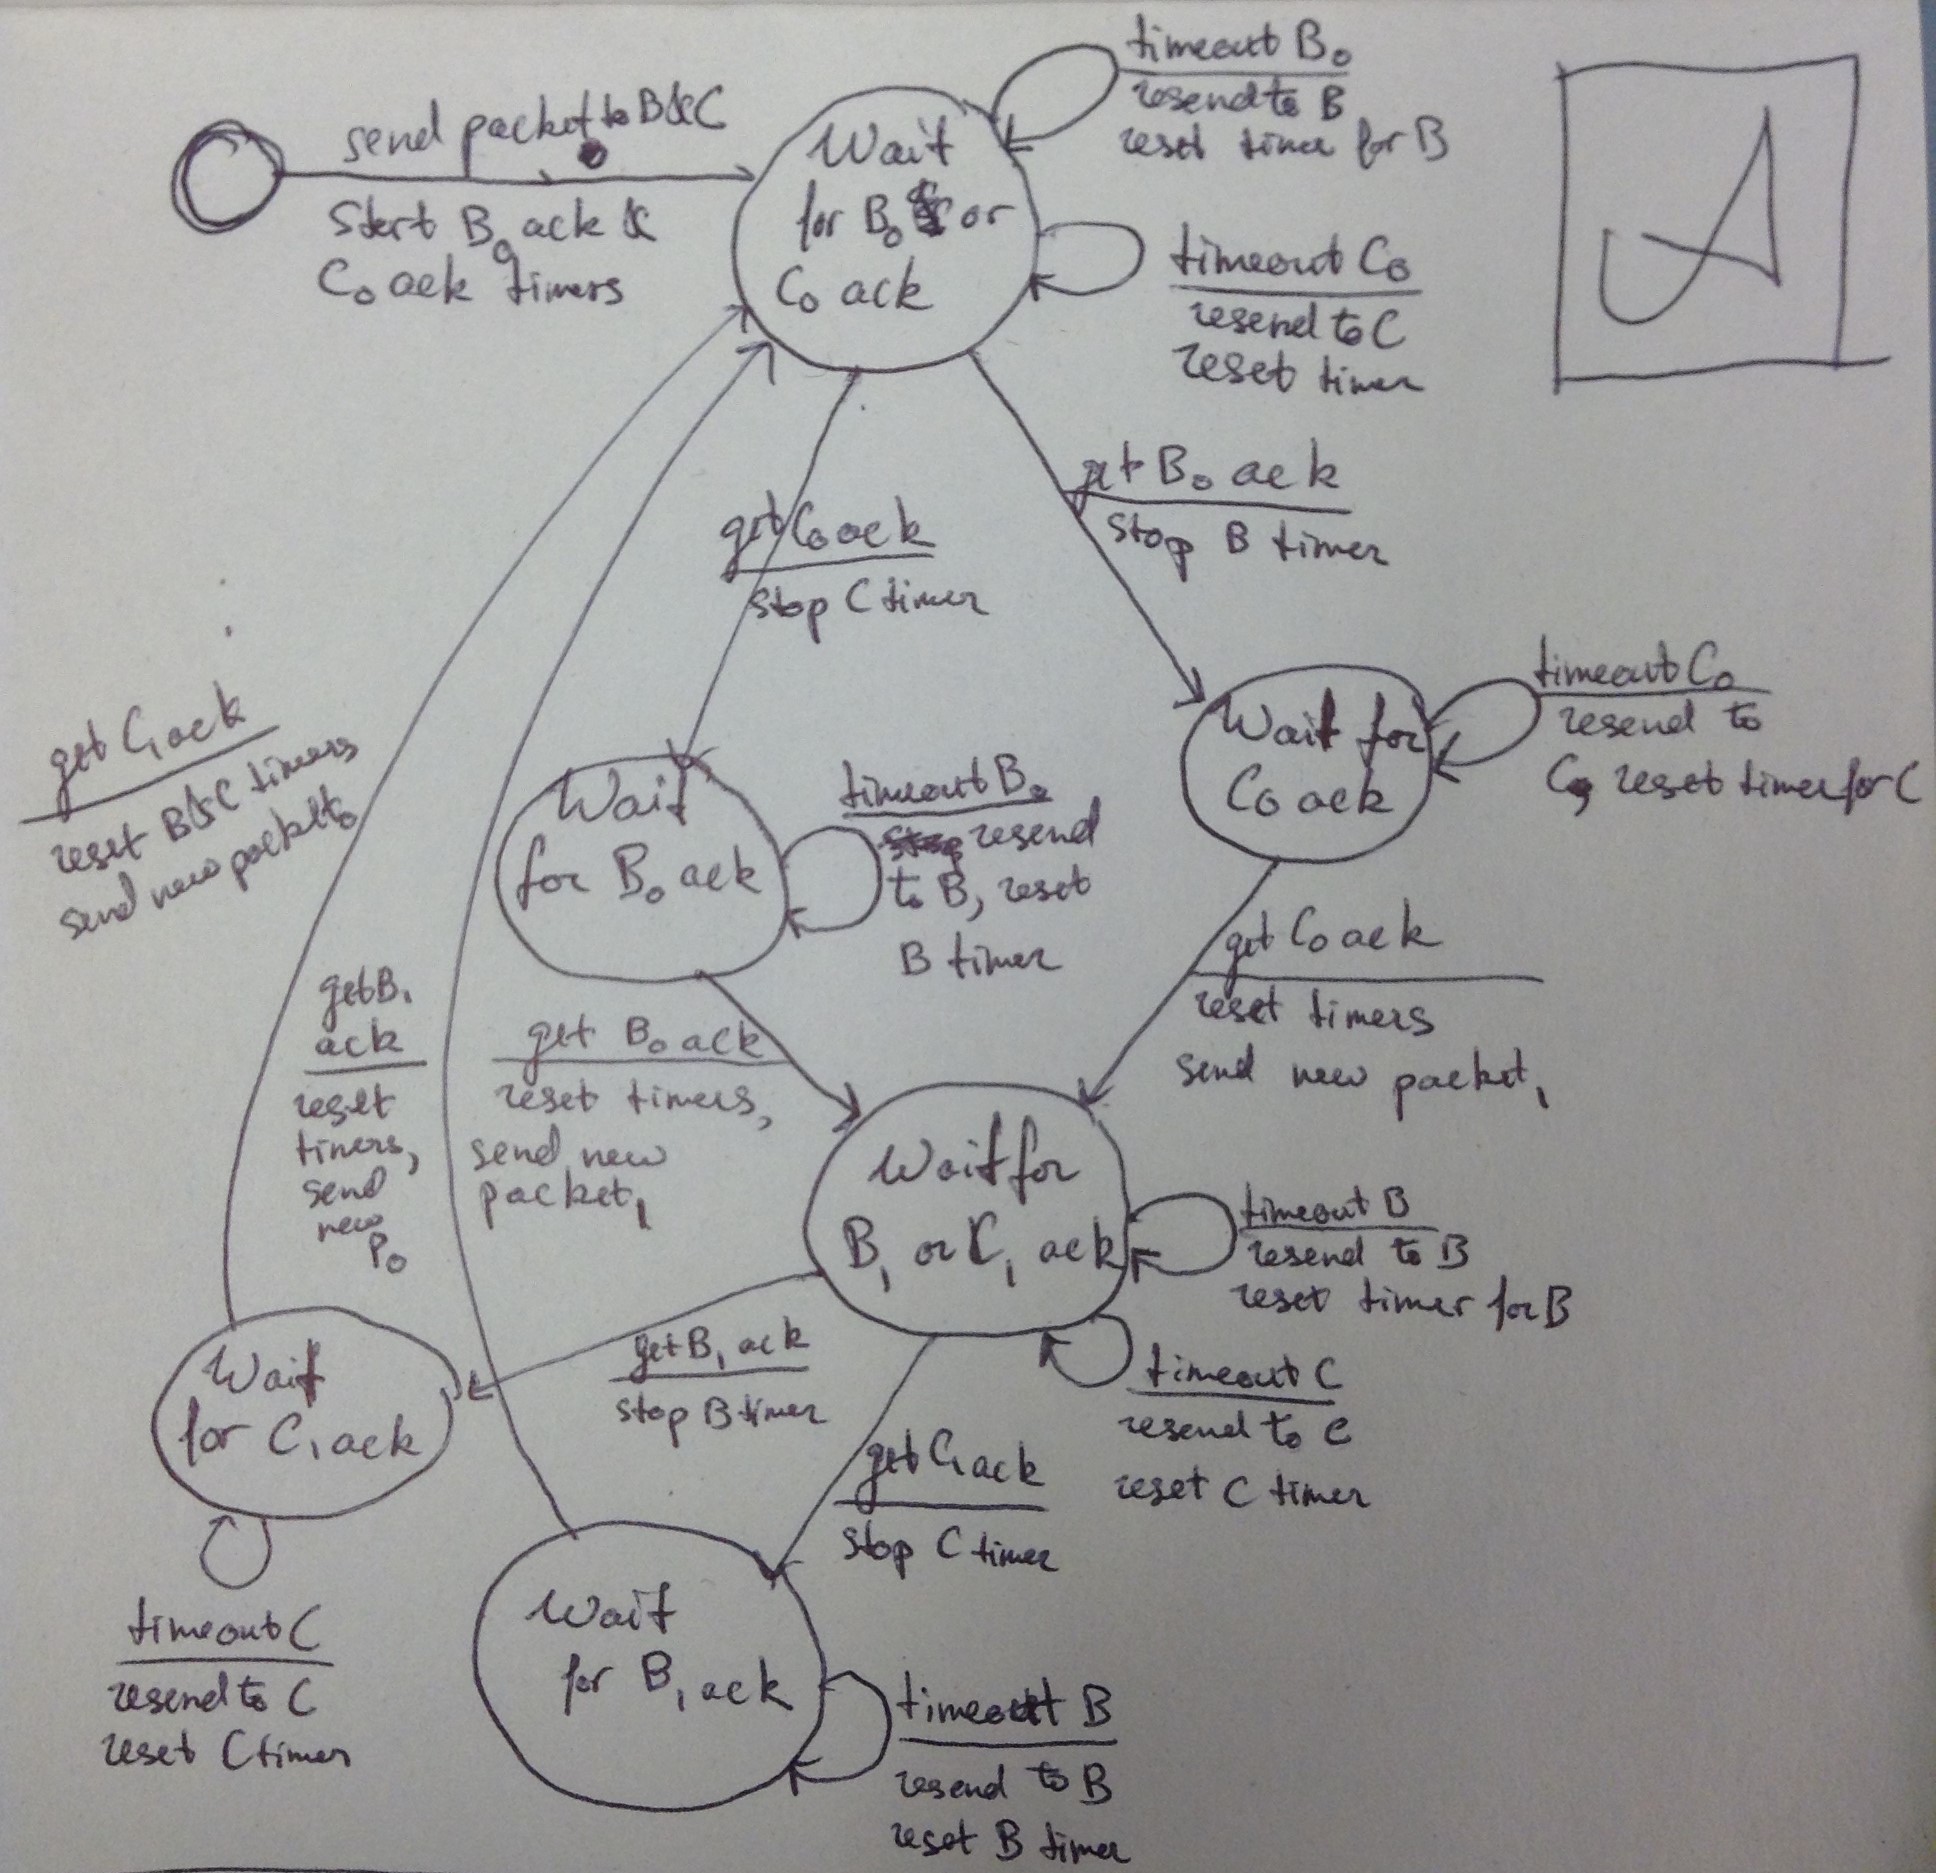 send packet to B&C
Start B0 ack &
C0 ack timers
Wait
for B0 or
C0 ack
timeout B0
resend to B
reset timer for B
timeout C0
resend to C
reset timer
A
get C0 ack
stop C timer
get B0 ack
stop B timer
Wait for
C0 ack
timeout C0
resend to
C, reset timer for C
get C1 ack
reset B&C timers
send new packet0
Wait
for B0 ack
timeout B0
resend
to B, reset
B timer
get C0 ack
reset timers
send new packet1
get B1
ack
reset
timers,
send
new
P0
get B0 ack
reset timers,
send new
packet1
Wait for
B1 or C1 ack
timeout B
resend to B
reset timer for B
timeout C
resend to C
reset C timer
get B1 ack
stop B timer
get C1 ack
stop C timer
Wait
for C1 ack
timeout C
resend to C
reset C timer
Wait
for B1 ack
timeout B
resend to B
reset B timer